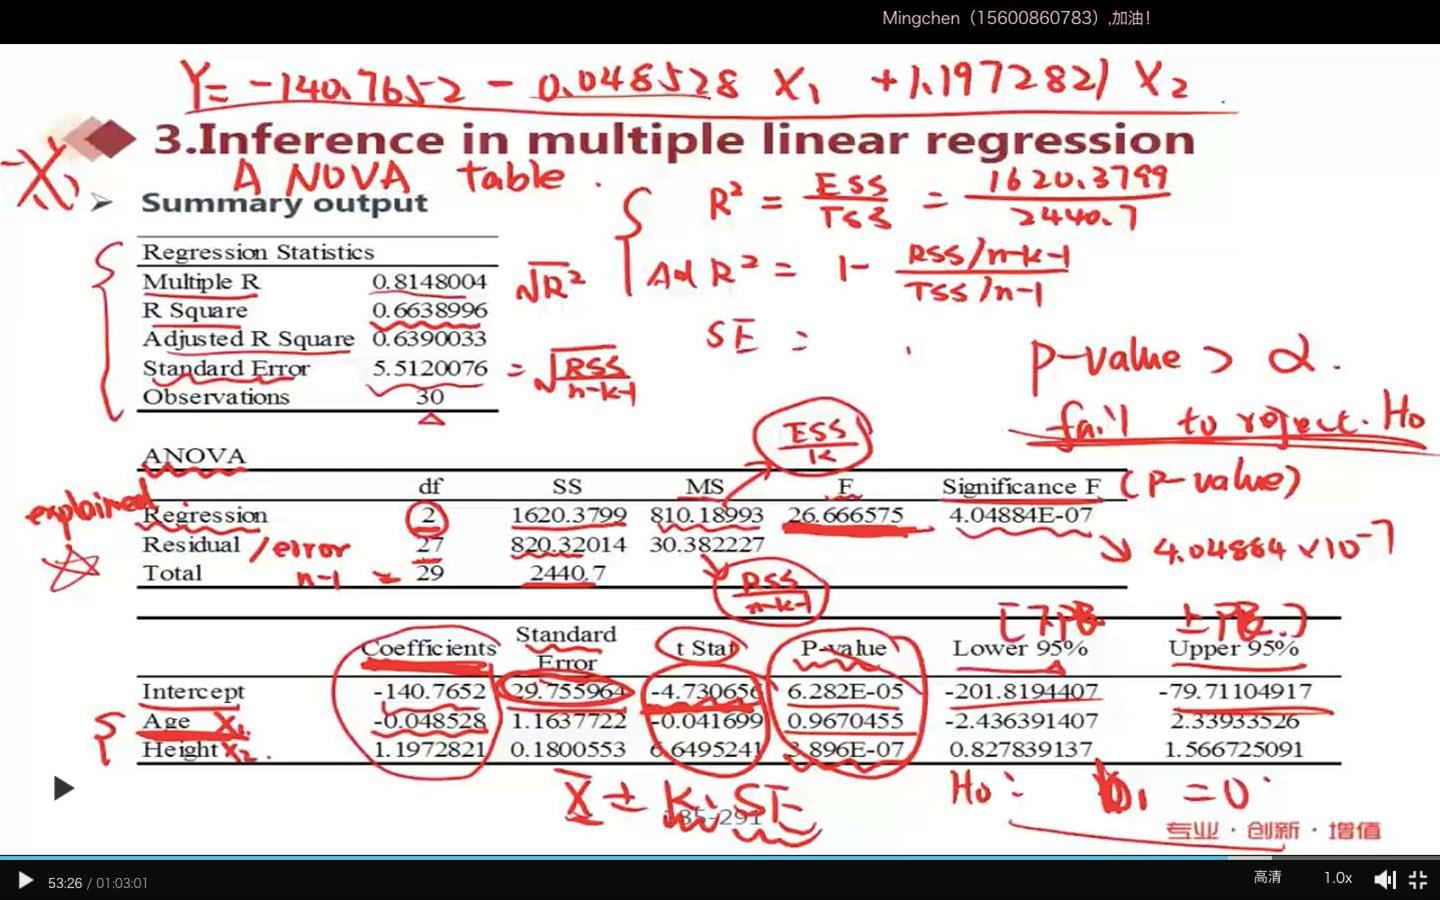 Mingchen（15600860783）,加油!
Y= -140.7652 - 0.048528 X1 +1.1972821 X2
3.Inference in multiple linear regression
-X1
ANOVA table.
Summary output
R² = ESS/TSS = 1620.3799/2440.7
Ad R² = 1- RSS/n-k-1 / TSS/n-1
SE =
Regression Statistics
Multiple R 0.8148004 √R²
R Square 0.6638996
Adjusted R Square 0.6390033
Standard Error 5.5120076 = √RSS/n-k-1
Observations 30
P-value > α.
fail to reject. H0
ESS/k
ANOVA
df SS MS F Significance F (P-value)
explained
Regression 2 1620.3799 810.18993 26.666575 4.04884E-07
Residual /error 27 820.32014 30.382227
4.04884 ×10-7
n-1 =
Total 29 2440.7
RSS/n-k-1
[下限 上限.]
Coefficients Standard Error t Stat P-value Lower 95% Upper 95%
Intercept -140.7652 29.755964 -4.730656 6.282E-05 -201.8194407 -79.71104917
Age X1 -0.048528 1.1637722 -0.041699 0.9670455 -2.436391407 2.33933526
Height X2. 1.1972821 0.1800553 6.6495241 3.896E-07 0.827839137 1.566725091
X̄ ± K·SE
H0: b1 =0
-291
专业·创新·增值
53:26 / 01:03:01
高清
1.0x